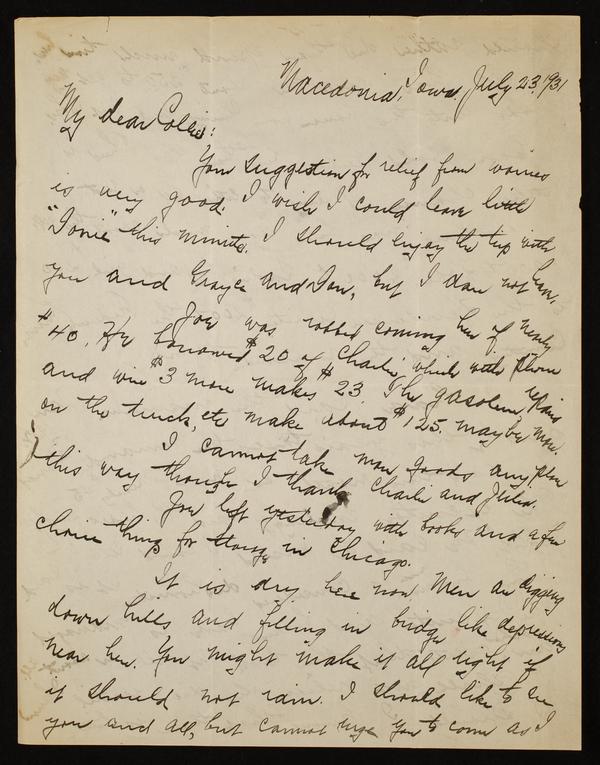 Macedonia, Iowa. July 23, 1931
My dear Collie:
Your suggestion for relief from worries
is very good. I wish I could leave little
"Ionie" this minute. I should enjoy the trip with
you and Grayce and Don, but I dare not leave.
Joe was robbed coming here of nearly
$40. He borrowed $20 of Charlie, which with phone
and wire $3 more makes $23. The gasoline, repairs
on the truck, etc make about $125. maybe more.
I cannot take more goods any place
this way though I thank Charlie and Julia.
Joe left yesterday with books and a few
choice things for storage in Chicago.
It is dry here now. Men are digging
down hills and filling in bridge like depressions
near here. You might make it all right if
it should not rain. I should like to see
you and all, but cannot urge you to come as I